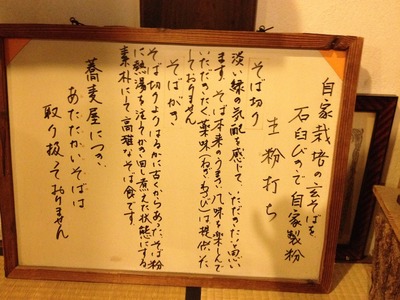 自家栽培の玄そばを
石臼びきで自家製粉
生粉打ち
そば切り
淡い緑の気配を感じて、いただきたい思い
ます。そば本来のうまさ、風味を楽しんで
いただきたく、薬味(ねぎ、わさび)は提供いた
しておりません
そばがき
そば切りよりはるかに古くからあった、そば粉
に熱湯を注いでかき回し煮えた状態にする
素朴にして高雅なそば食です。
蕎麦屋につき、
あたたかいそばは
取り扱っておりません